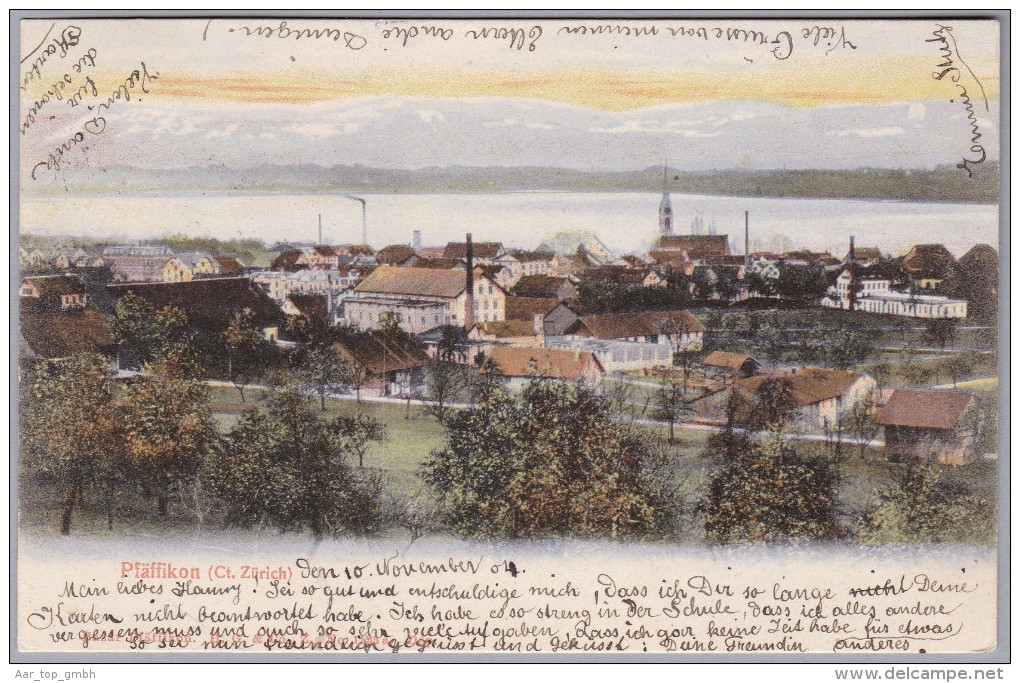 Viele Grüsse von meinen Eltern an die Deinigen.
Vielen Dank
für
die schönen
Karten
Pfäffikon (Ct. Zürich)
Den 10. November 04.
Mein liebes Hanny! Sei so gut und entschuldige mich, dass ich Dir so lange nicht Deine
Karten nicht beantwortet habe. Ich habe es so streng in der Schule, dass ich alles andere
vergessen muss und auch so sehr viele Aufgaben, dass ich gar keine Zeit habe für etwas
anderes.
So sei nun freundlich gegrüsst und geküsst: Deine Freundin
© www.delcampe.net
Au_top_gmbh